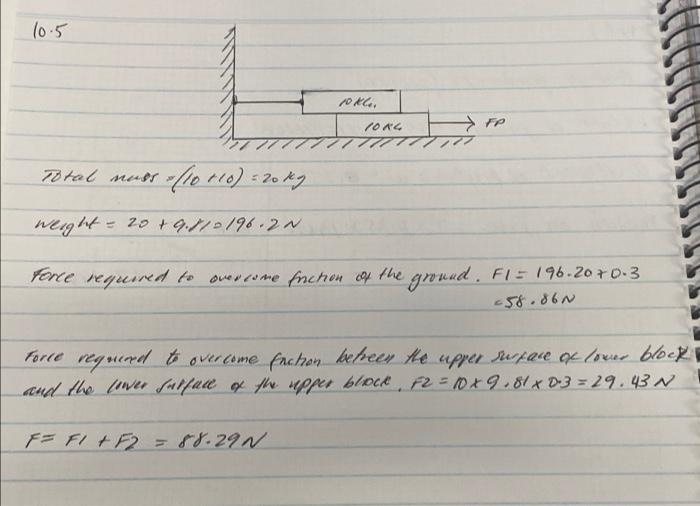 10.5
10KG.
10KG
FP
Total mass = (10+10) = 20 kg
weight = 20 + 9.81 = 196.2N
Force required to overcome friction of the ground. F1 = 196.20 + 0.3
= 58.86N
Force required to overcome friction between the upper surface of lower block
and the lower surface of the upper block, F2 = 10 x 9.81 x 0.3 = 29.43 N
F = F1 + F2 = 88.29N